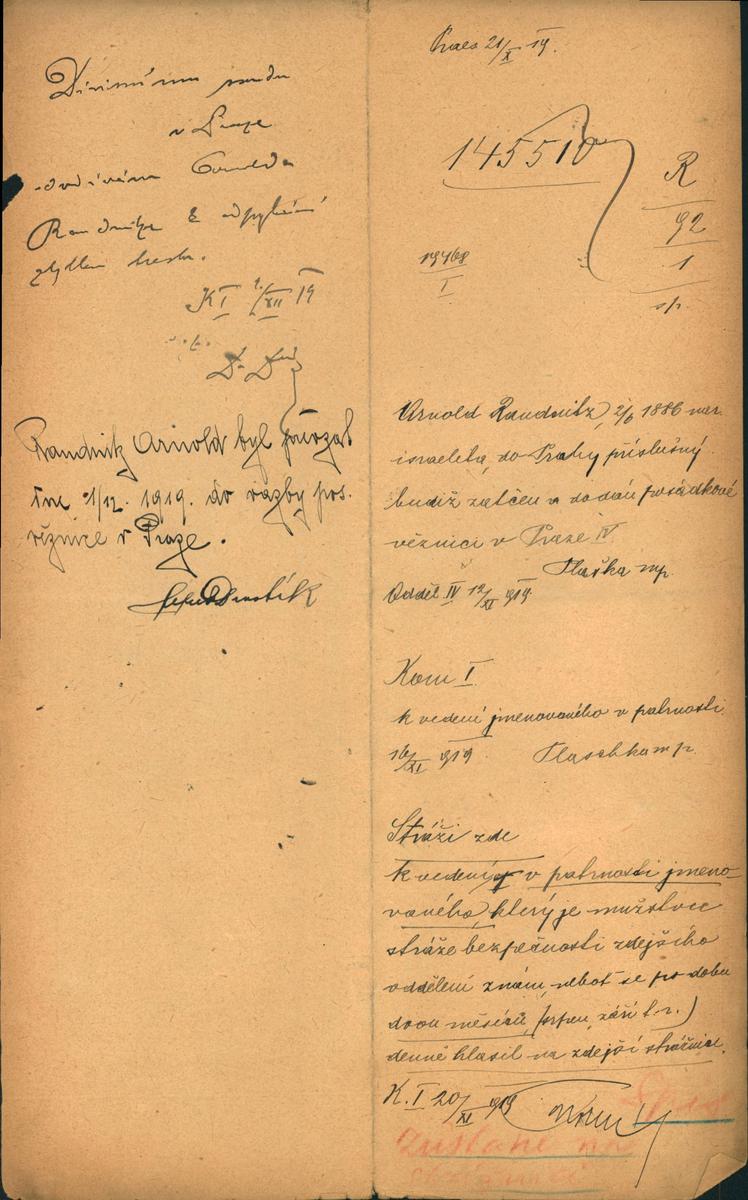 Divisnímu soudu
v Praze
dodávám Arnolda
Raudnitze k odpykání
zbytku trestu.
K I 1/XII 19
Raudnitz Arnold byl převzat
dne 1/12. 1919. do vazby pos.
věznice v Praze.
Praes 21/X 19.
145510
R
92
1
sp.
19468
I
Arnold Raudnitz, 2/6 1886 nar.
israelita, do Prahy příslušný
budiž zatčen a dodán posádkové
věznici v Praze IV.
Plaška mp.
Odděl. IV 12/XI 1919.
Kom I.
k vedení jmenovaného v patrnosti.
16/XI 1919 Plaschka mp.
Stráži zde
k vedení v patrnosti jmeno-
vaného, který je mužstvu
stráže bezpečnosti zdejšího
oddělení znám, neboť se po dobu
dvou měsíců, (srpen, září t. r.)
denně hlásil na zdejší strážnici.
K. I 20/XI 1919
Spis
zůstane na
strážnici